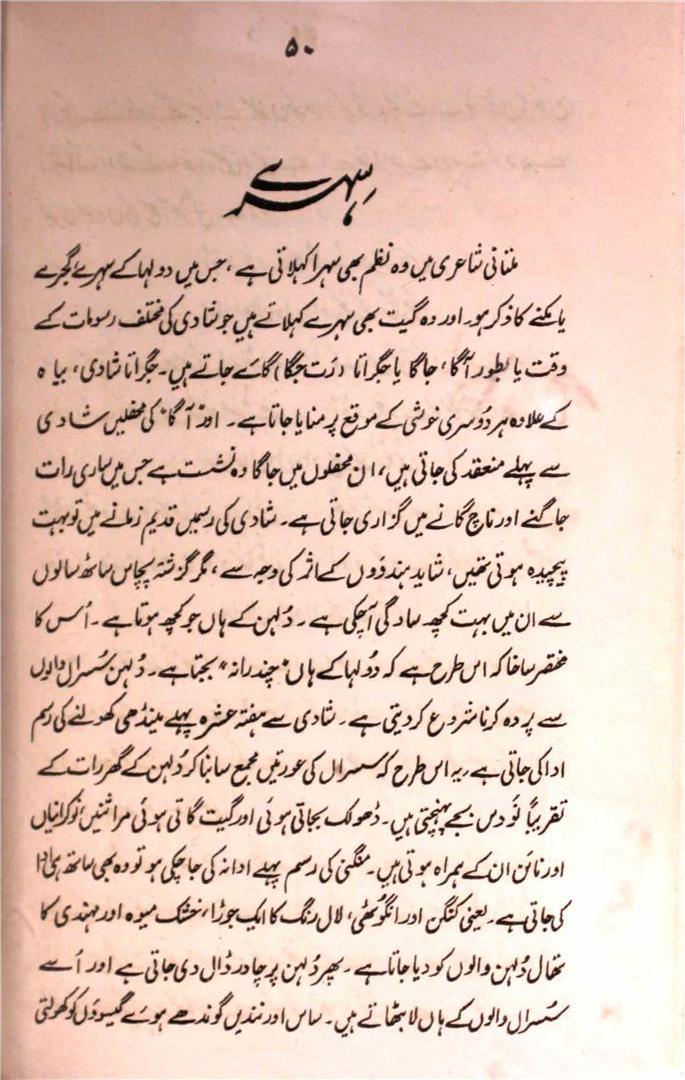 ۵۰
سہرے
ملتانی شاعری میں وہ نظم بھی سہرا کہلاتی ہے، جس میں دولہا کے سہرے گجرے
یا مکنے کا ذکر ہو۔ اور وہ گیت بھی سہرے کہلاتے ہیں جو شادی کی مختلف رسومات کے
وقت یا بطور آگا، جاگا یا جگراتا (رَت جگا) گائے جاتے ہیں۔ جگراتا شادی، بیاہ
کے علاوہ ہر دُوسری خوشی کے موقع پر منایا جاتا ہے۔ اور "آگا" کی محفلیں شادی
سے پہلے منعقد کی جاتی ہیں، ان محفلوں میں جاگا وہ نشست ہے جس میں ساری رات
جاگنے اور ناچ گانے میں گزاری جاتی ہے۔ شادی کی رسمیں قدیم زمانے میں تو بہت
پیچیدہ ہوتی تھیں، شاید ہندوؤں کے اثر کی وجہ سے، مگر گزشتہ پچاس ساٹھ سالوں
سے ان میں بہت کچھ سادگی آچکی ہے۔ دُلہن کے ہاں جو کچھ ہوتا ہے۔ اُس کا
مختصر سا خاکہ اس طرح ہے کہ دُولہا کے ہاں "چندرانہ" بجتا ہے۔ دُلہن سُسرال والوں
سے پردہ کرنا شروع کر دیتی ہے۔ شادی سے ہفتہ عشرہ پہلے مینڈھی کھولنے کی رسم
ادا کی جاتی ہے، یہ اس طرح کہ سسرال کی عورتیں مجمع سا بنا کر دُلہن کے گھر رات کے
تقریباً نَو دس بجے پہنچتی ہیں۔ ڈھولک بجاتی ہوئی اور گیت گاتی ہوئی مراثنیں، نوکرانیاں
اور نائن ان کے ہمراہ ہوتی ہیں۔ منگنی کی رسم پہلے ادا نہ کی جا چکی ہو تو وہ بھی ساتھ ہی ادا
کی جاتی ہے۔ یعنی کنگن اور انگوٹھی، لال رنگ کا ایک جوڑا، خشک میوہ اور مہندی کا
تھال دُلہن والوں کو دیا جاتا ہے۔ پھر دُلہن پر چادر ڈال دی جاتی ہے اور اُسے
سُسرال والوں کے ہاں لا بٹھاتے ہیں۔ ساس اور نندیں گوندھے ہوئے گیسوؤں کو کھولتی